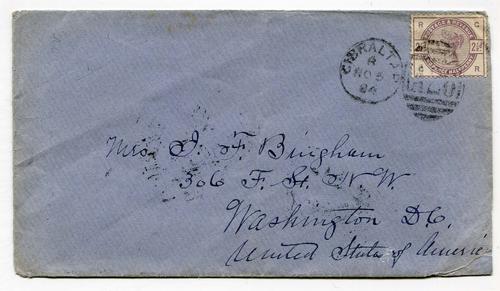 POSTAGE & REVENUE
R G
2½d
G R
GIBRALTAR
A
NO 5
84
A26
Mrs. J. F. Bingham
306 F. St. N.W.
Washington D.C.
United States of America